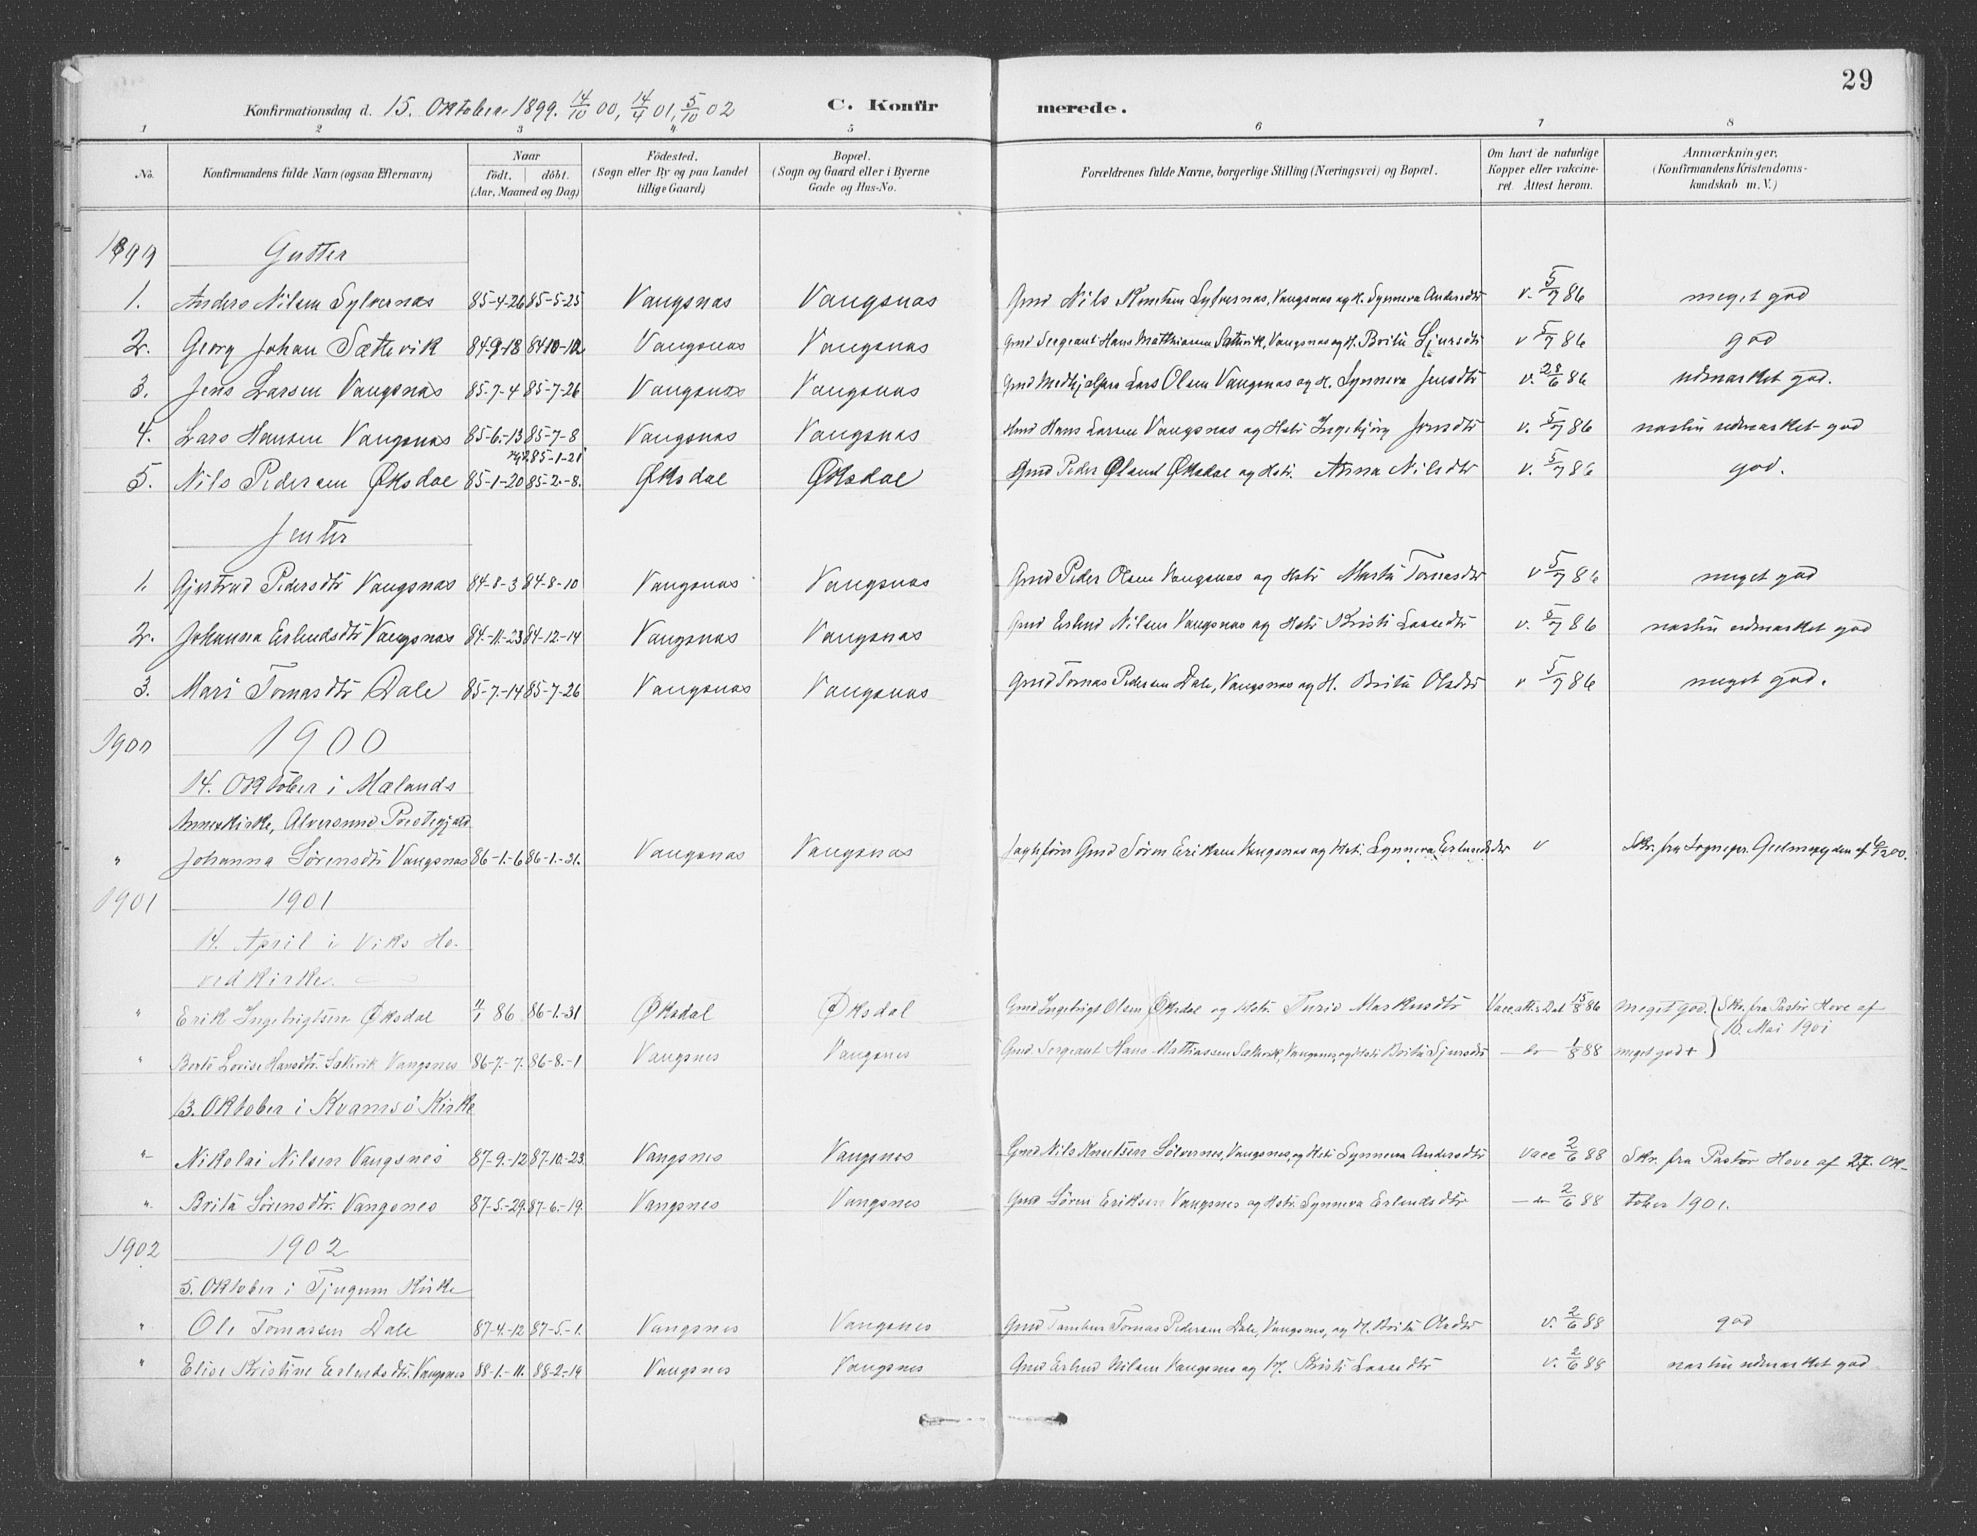 29
Konfirmationsdag d. 15. Oktober 1899. 14/10 00, 14/4 01, 5/10 02 C. Konfirmerede.
1 2 3 4 5 6 7 8
No. Konfirmandens fulde Navn (ogsaa Efternavn) Naar födt. döbt. (Aar, Maaned og Dag) Födested. (Sogn eller By og paa Landet tillige Gaard) Bopæl. (Sogn og Gaard eller i Byerne Gade og Hus-No. Forældrenes fulde Navne, borgerlige Stilling (Næringsvei) og Bopæl. Om havt de naturlige Kopper eller vakcineret. Attest herom. Anmærkninger. (Konfirmandens Kristendomskundskab m. V.)
1899 Gutter
1. Anders Nilsen Sylvernæs 85-4-26 85-5-25 Vangsnæs Vangsnæs Gmd Nils Knutsen Sylvernæs, Vangsnæs og H. Synneva Andersdtr v. 5/7 86 meget god
2. Georg Johan Sættevik 84-9-18 84-10-12 Vangsnæs Vangsnæs Gmd Sergeant Hans Matthiassen Sættevik, Vangsnæs og H. Brita Sjursdtr v 5/7 86 god
3. Jens Larsen Vangsnæs 85-7-4 85-7-26 Vangsnæs Vangsnæs Gmd Medhjælper Lars Olsen Vangsnæs og H. Synneva Jensdtr v. 28/6 86 udmærket god.
4. Lars Hansen Vangsnæs 85-6-13 85-7-8 Vangsnæs Vangsnæs Gmd Hans Larsen Vangsnæs og Hstr Ingebjørg Jonsdtr v. 5/7 86 næsten udmærket god
85-1-21
5. Nils Pedersen Øksdal 85-1-20 85-2-8. Øksdal Øksdal Gmd Peder Olsen Øksdal og Hstr. Anna Nilsdtr v. 5/7 86 god.
Jenter
1. Gjertrud Pedersdtr Vangsnæs 84-8-3 84-8-10 Vangsnæs Vangsnæs Gmd Peder Olsen Vangsnæs og Hstr Marta Tomasdtr v 5/7 86 meget god
2. Johanna Erlendsdtr Vangsnæs 84-11-23 84-12-14 Vangsnæs Vangsnæs Gmd Erlend Nilsen Vangsnæs og Hstr Kristi Lassedtr v. 5/7 86 næsten udmærket god
3. Mari Tomasdtr Dale 85-7-14 85-7-26 Vangsnæs Vangsnæs Gmd Tomas Pedersen Dale, Vangsnæs og H. Brita Olsdtr v 5/7 86 meget god.
1900 1900
14. Oktober i Mælands
Annexkirke, Alversund Prestegjeld
" Johanna Sørensdtr Vangsnæs 86-1-6 86-1-31. Vangsnæs Vangsnæs Gmd Søren Eriksen Vangsnæs og Hstr. Synneva Erlendsdtr v Skr. fra Sognepr.
1901 1901
14. April i Viks Ho-
vedkirke.
" Erik Ingebrigtsen Øksdal 11/1 86 86-1-31 Øksdal Øksdal Gmd Ingebrigt Olsen Øksdal og Hstr. Turid Markusdtr Vacc. att. dat 15/8 86 meget god. Skr. fra Pastor Hove af
10. Mai 1901
" Berte Lovise Hansdtr. Sættevik Vangsnes 86-7-7. 86-8-1 Vangsnes Vangsnes Gmd Sergeant Hans Mathiassen Sættevik, Vangsnes, og Hstr Brita Sjursdtr — do — 1/8 88 meget god +
13. Oktober i Kvamsö Kirke
" Nikolai Nilsen Vangsnes 87-9-12 87-10-23. Vangsnes Vangsnes Gmd Nils Knutsen Sølvernes, Vangsnes, og Hstr Synneva Andersdtr vacc 2/6 88 Skr. fra Pastor Hove af 27. Ok-
" Brita Sørensdtr. Vangsnes 87-5-29. 87-6-19. Vangsnes Vangsnes Gmd Søren Eriksen Vangsnes og Hstr. Synneva Erlendsdtr — do 2/6 88 tober 1901.
1902 1902
5. Oktober i Tjugum Kirke
" Ole Tomassen Dale 87-4-12 87-5-1. Vangsnes Vangsnes Gmd Tomas Pedersen Dale, Vangsnes, og H. Brita Olsdtr v. 2/6 88 god
" Elise Kristine Erlendsdtr. Vangsnes 88-1-11. 88-2-19 Vangsnes Vangsnes Gmd Erlend Nilsen Vangsnes og H. Kristi Lassedtr v. 2/6 88 næsten udmærket god